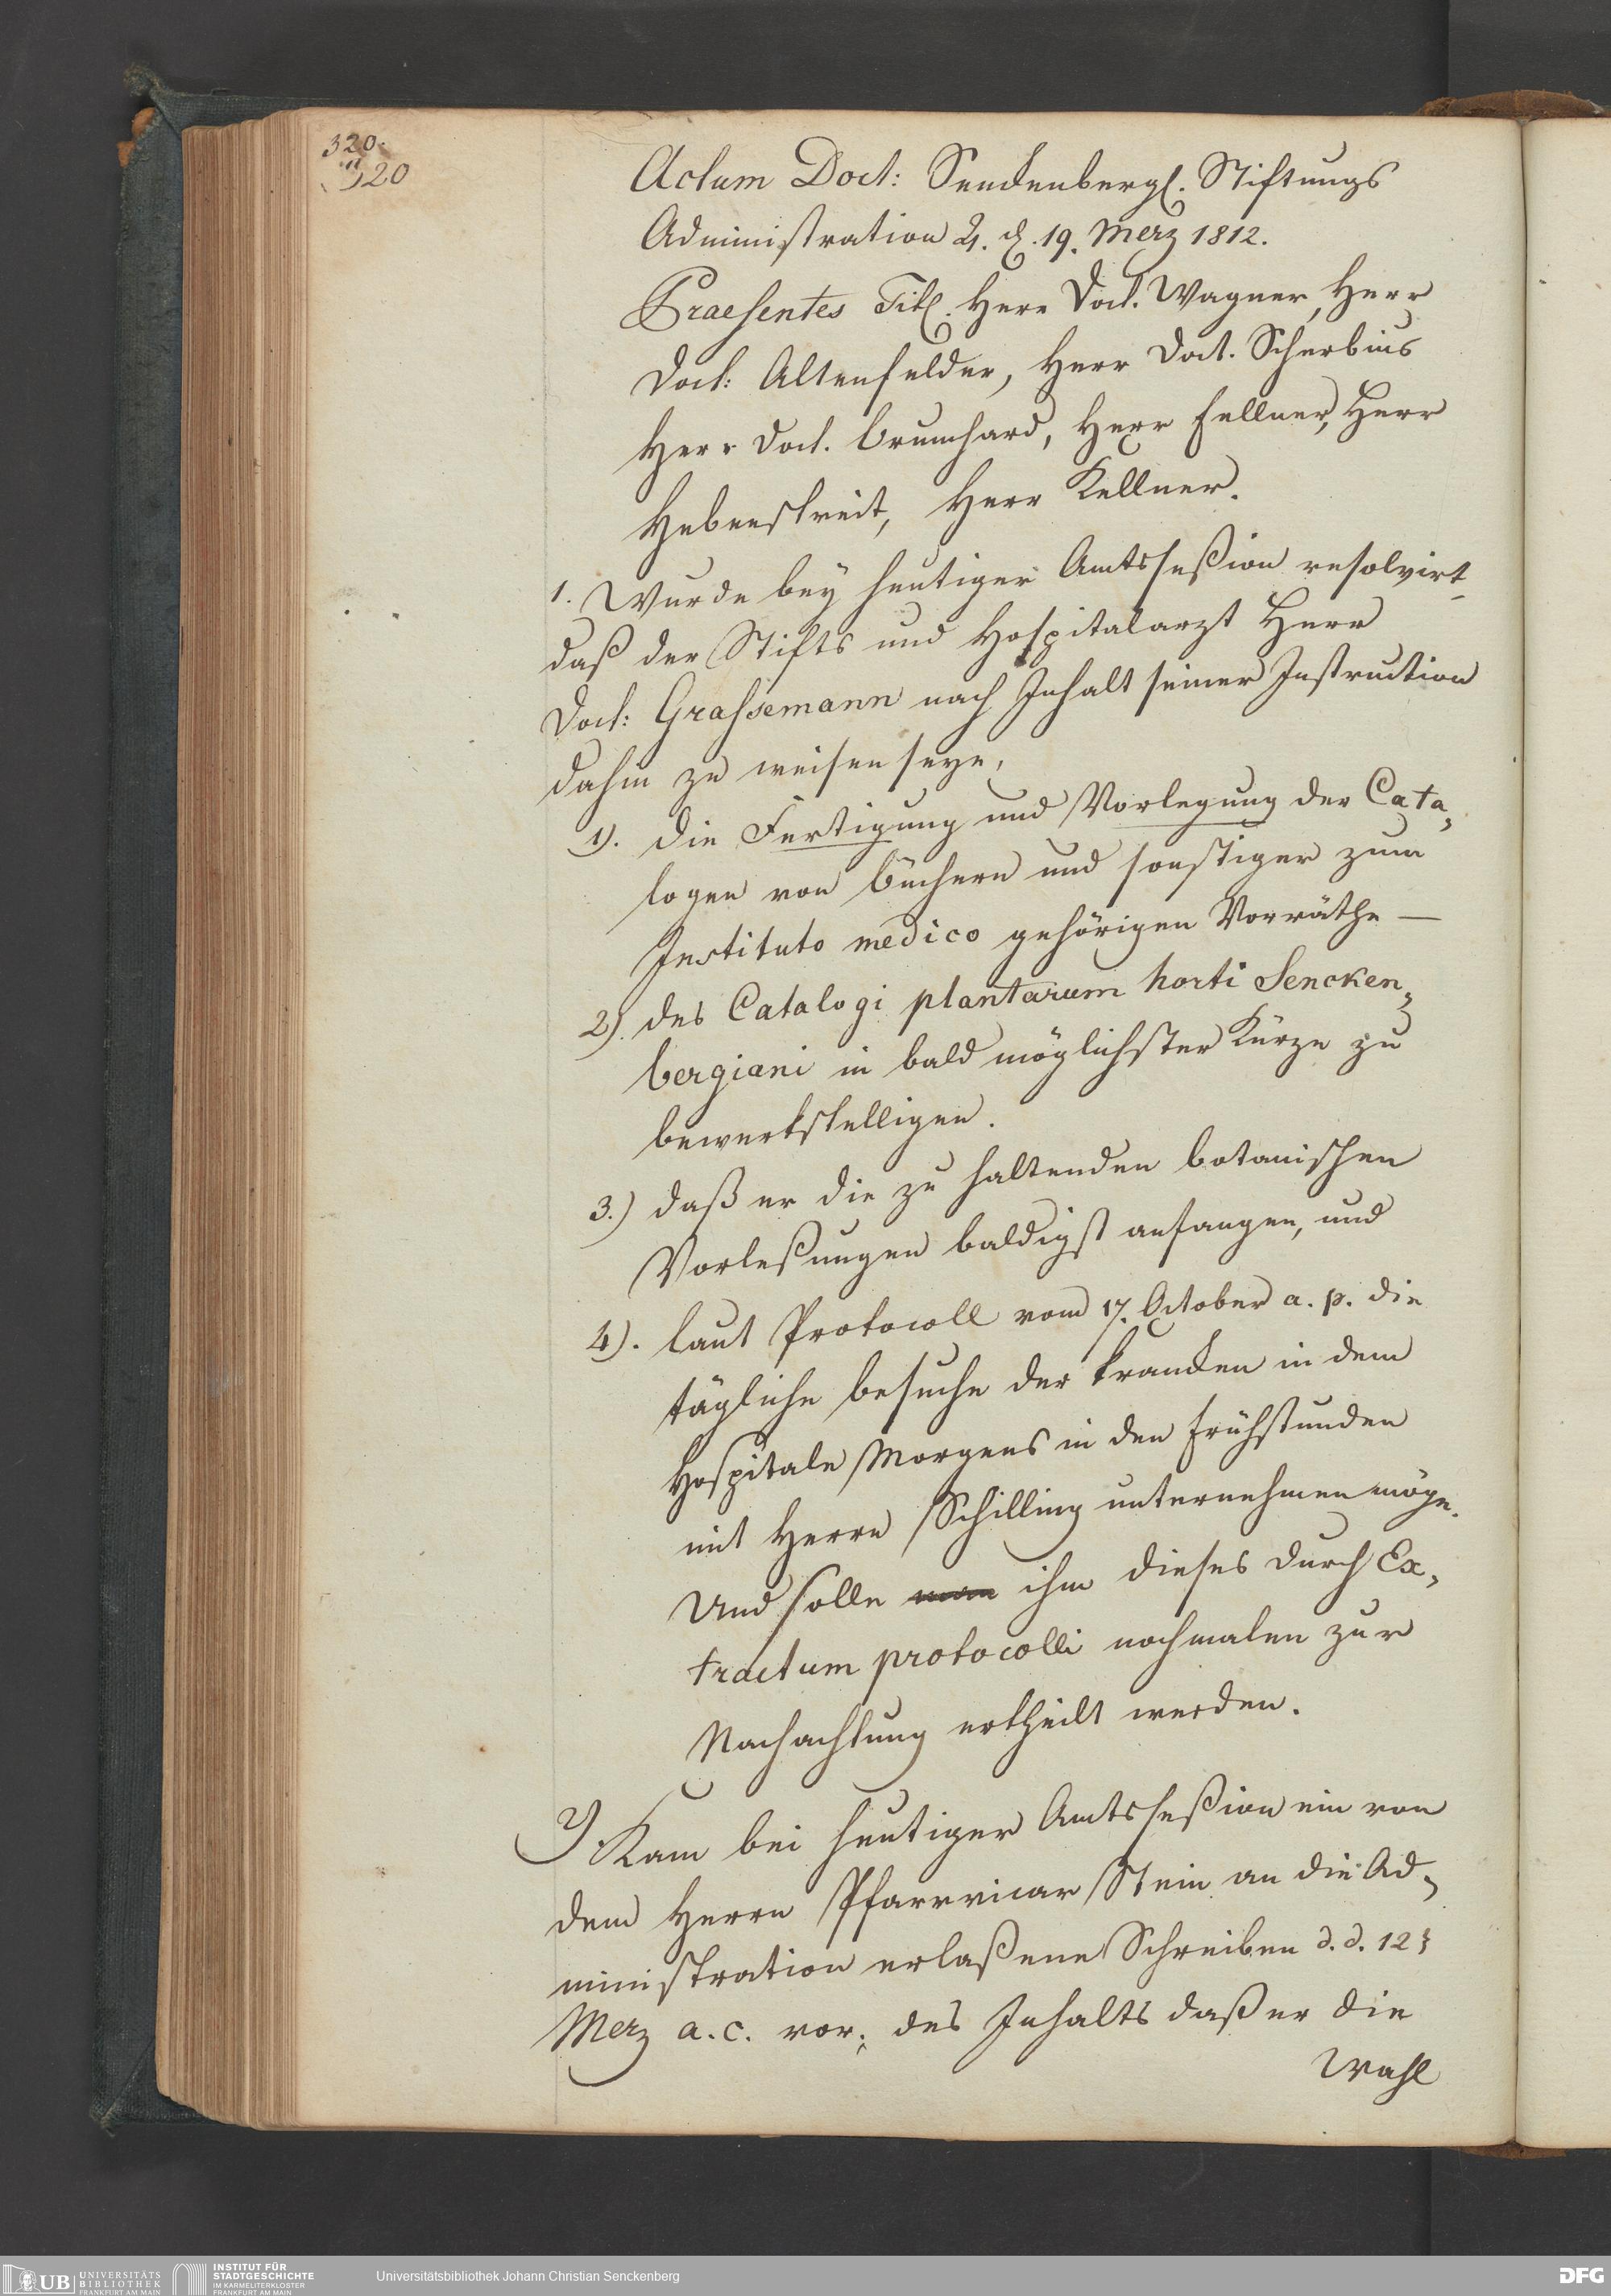 320.
320
Actum Doct: Senckenbergl. Stiftungs
Administration 4. d. 19. Merz 1812.
Praesentes Titl. Herr Doct. Wagner, Herr
Doct: Altenfelder, Herr Doct. Scherbius
Herr Doct. Brumhard, Herr Fellner, Herr
Hebenstreit, Herr Kellner.
1. Wurde bey heutiger Amtsseßion resolvirt
daß der Stifts und Hospitalarzt Herr
Doct: Grassemann nach Inhalt seiner Instruction
dahin zu weisen seye,
1). die Fertigung und Vorlegung der Cata,
logen von Büchern und sonstiger zum
Instituto medico gehörigen Vorräthe —
2). des Catalogi plantarum horti Sencken,
bergiani in bald möglichster Kürze zu
bewerkstelligen.
3.) daß er die zu haltenden botanischen
Vorleßungen baldigst anfangen, und
4). laut Protocoll vom 17. October a. p. die
tägliche Besuche der Krancken in dem
Hospitale Morgens in den Frühstunden
mit Herrn Schilling unternehmen möge.
Und solle man ihm dieses durch Ex,
tractum protocolli nochmalen zur
Nachachtung ertheilt werden.
2). Kam bei heutiger Amtsseßion ein von
dem Herrn Pfarrvicar Stein an die Ad,
ministration erlaßene Schreiben d. d. 12t
Merz a. c. vor; des Inhalts daß er die
Wahl
UB UNIVERSITÄTS
BIBLIOTHEK
FRANKFURT AM MAIN
INSTITUT FÜR
STADTGESCHICHTE
IM KARMELITERKLOSTER
FRANKFURT AM MAIN
Universitätsbibliothek Johann Christian Senckenberg
DFG